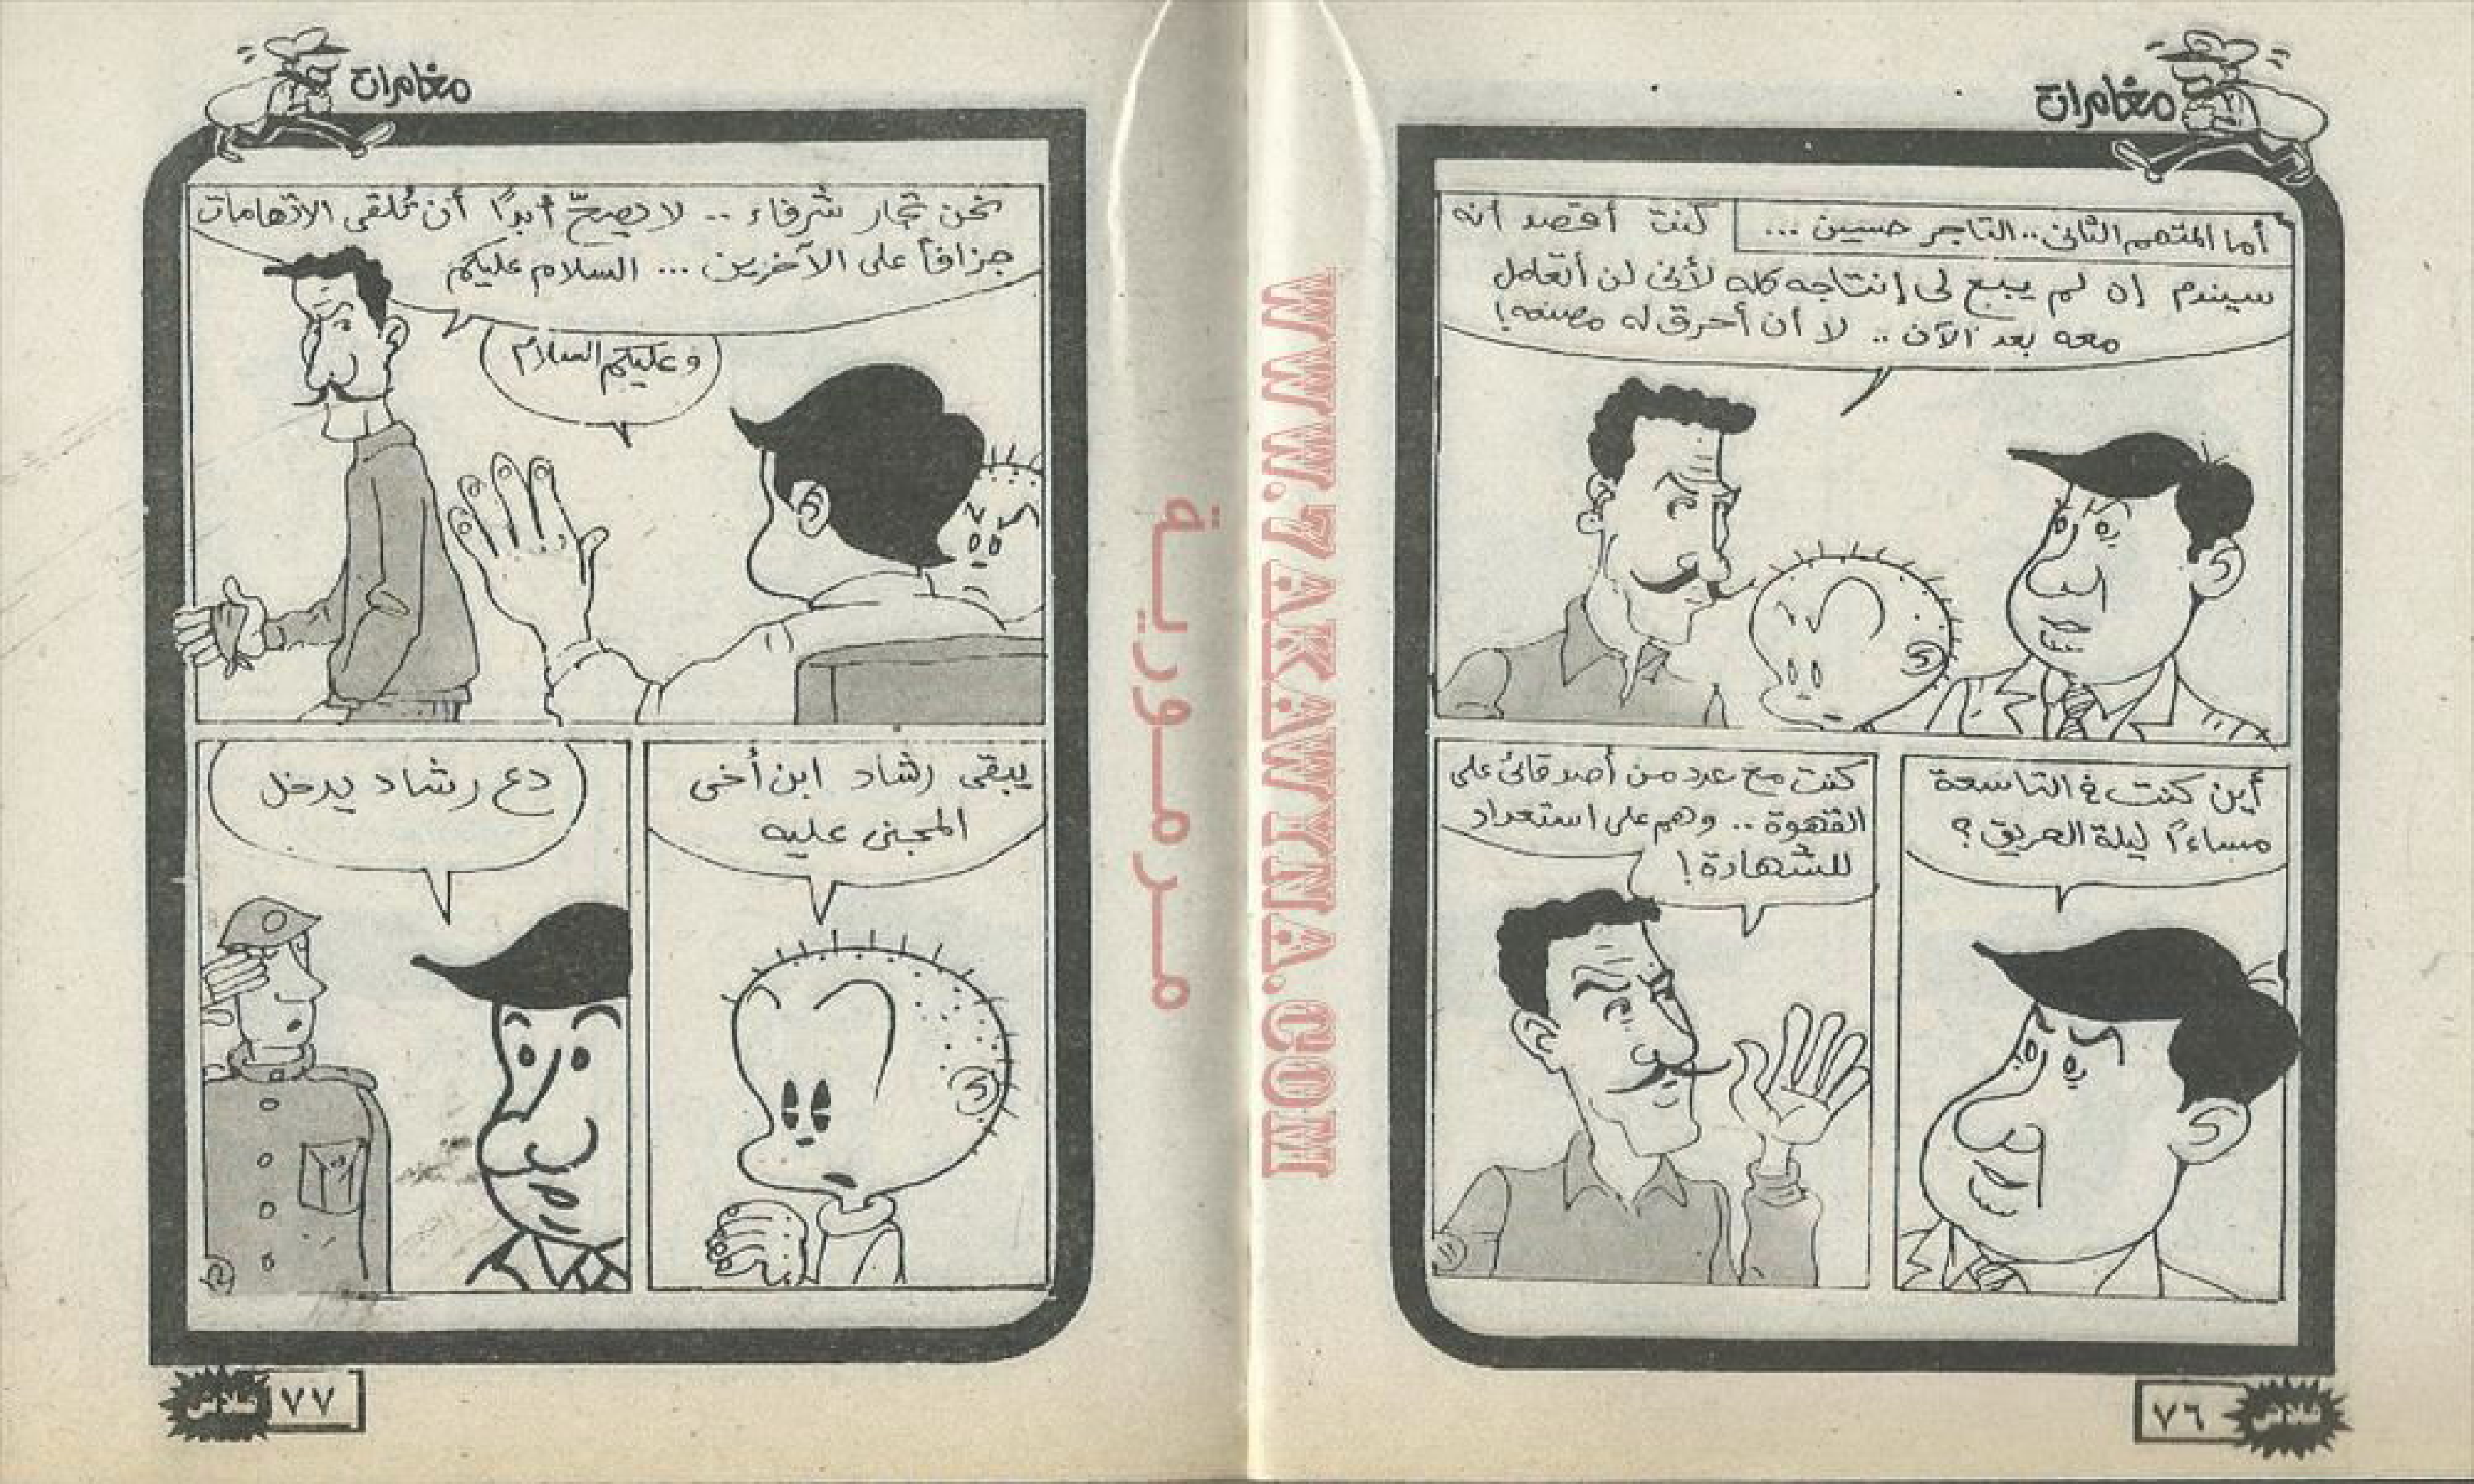 مغامرات
أما المتهم الثانى.. التاجر حسين ...
كنت أقصد أنه
سيندم إن لم يبع لى إنتاجه كله لأنى لن أتعامل
معه بعد الآن .. لا أن أحرق له مصنعه!
أين كنت فى التاسعة
مساءًا ليلة الحريق؟
كنت مع عدد من أصدقائى على
القهوة .. وهم على استعداد
للشهادة!
١١
٧٦
فلاش
WWW.7AKAWINA.COM
مرمورية
مغامرات
نحن تجار شرفاء .. لا يصحّ أبدًا أن تُلقى الاتهامات
جزافاً على الآخرين ... السلام عليكم
وعليكم السلام
يبقى رشاد ابن أخى
المجنى عليه
دع رشاد يدخل
١٢
٧٧
فلاش